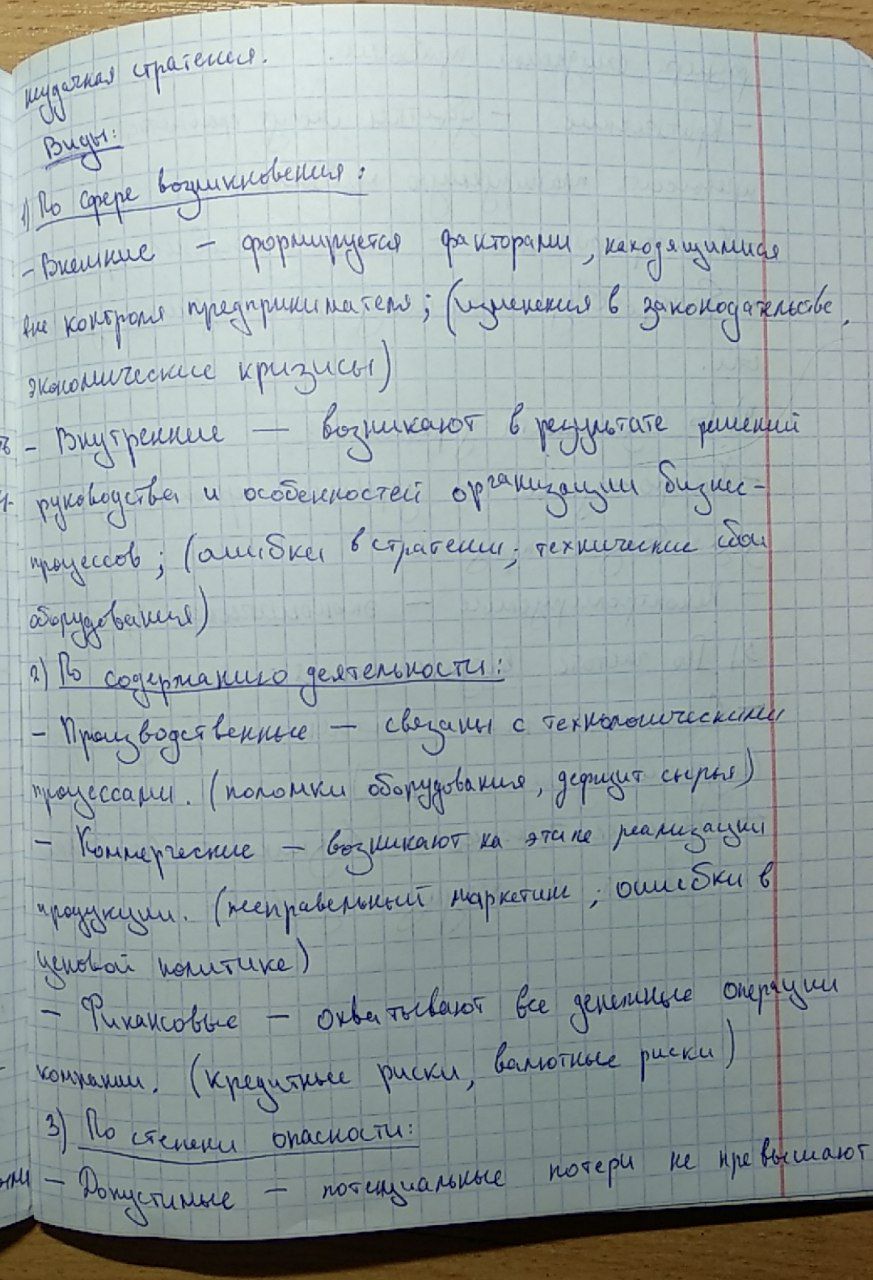 неудачная стратегия.
Виды:
1) По сфере возникновения:
- Внешние — формируется факторами, находящимися
вне контроля предпринимателя; (изменения в законодательстве,
экономические кризисы)
- Внутренние — возникают в результате решений
руководства и особенностей организации бизнес-
процессов; (ошибки в стратегии; технические сбои
оборудования)
2) По содержанию деятельности:
- Производственные — связаны с технологическими
процессами. (поломки оборудования, дефицит сырья)
- Коммерческие — возникают на этапе реализации
продукции. (неправильный маркетинг; ошибки в
ценовой политике)
- Финансовые — охватывают все денежные операции
компании. (кредитные риски, валютные риски)
3) По степени опасности:
- Допустимые — потенциальные потери не превышают